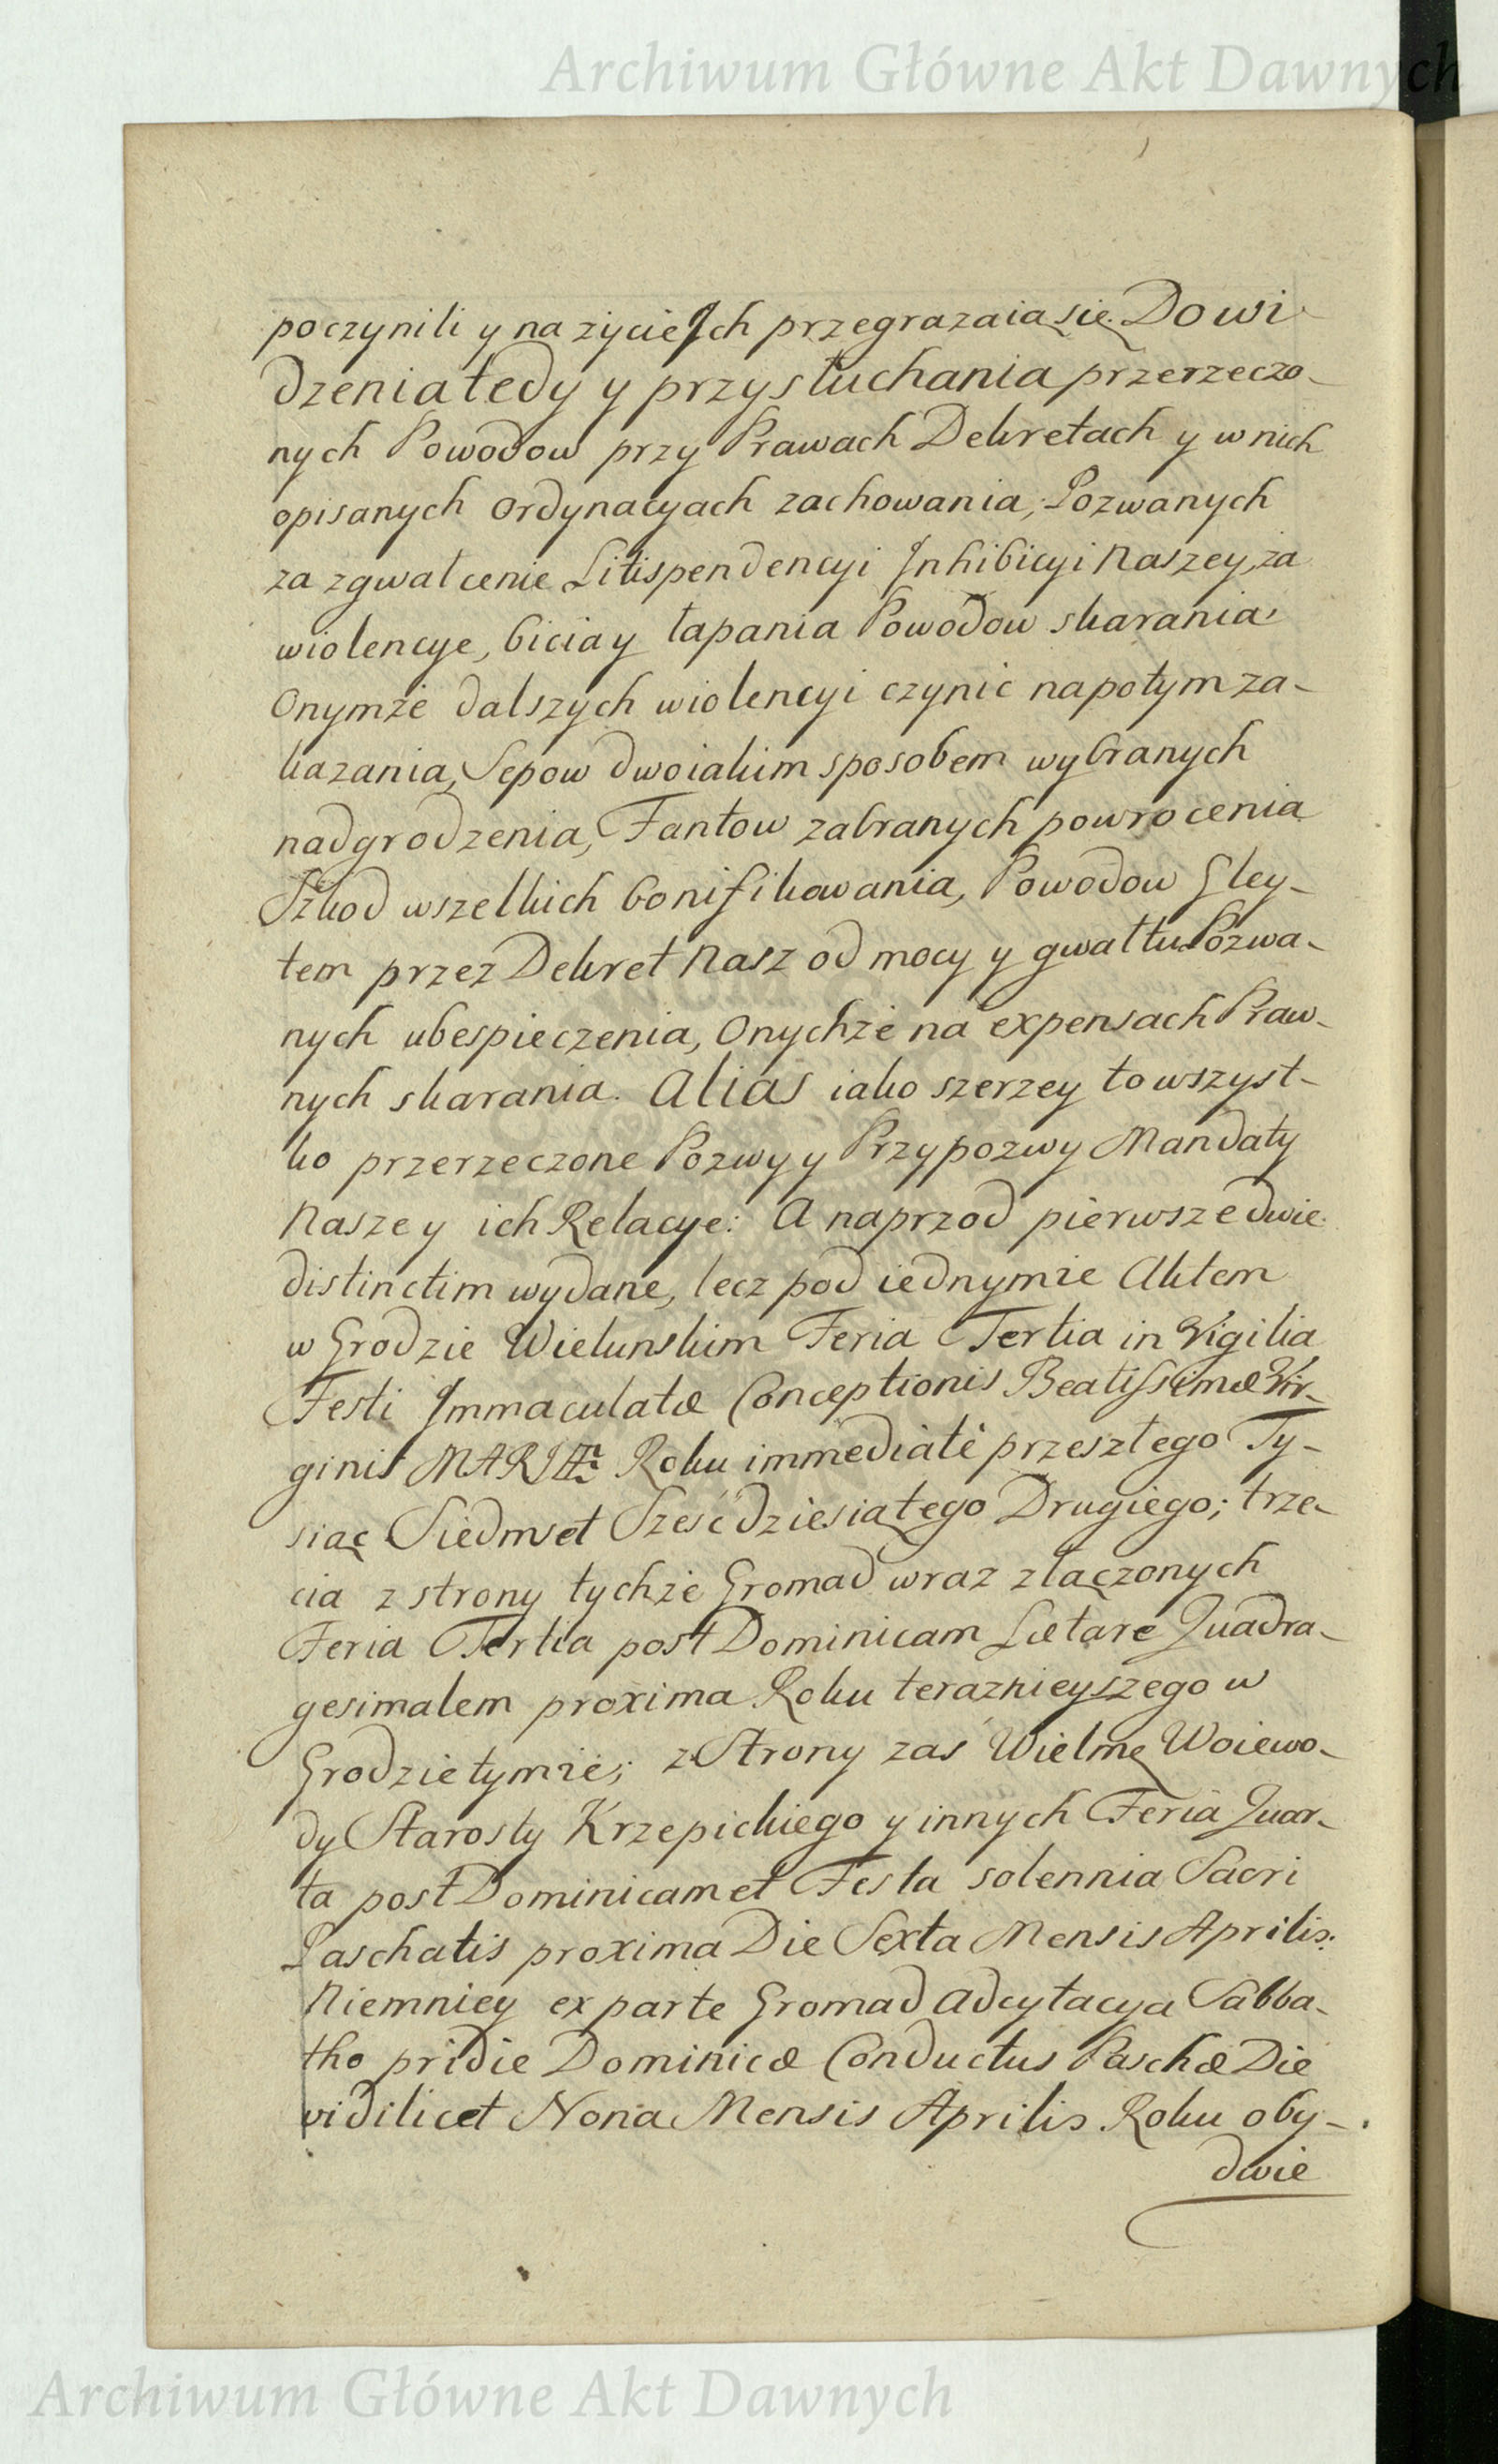 Archiwum Główne Akt Dawnych
poczynili y na życie Jch przegrazaią się. Do wi-
dzenia tedy y przysłuchania przerzeczo-
nych Powodow przy Prawach Dekretach y w nich
opisanych Ordynacyach zachowania; Pozwanych
za zgwałcenie Litispendencyi Jnhibicyi Naszey, za
wiolencye, bicia y łapania Powodow skarania,
Onymże dalszych wiolencyi czynic napotym za-
kazania, Sepow dwoiakim sposobem wybranych
nadgrodzenia, Fantow zabranych powrocenia
Szkod wszelkich bonifikowania, Powodow Gley-
tem przez Dekret Nasz od mocy y gwałtu Pozwa-
nych ubespieczenia, Onychże na expensach Praw-
nych skarania. Alias iako szerzey to wszyst-
ko przerzeczone Pozwy y Przypozwy Mandaty
Nasze y ich Relacye: A naprzod pierwsze dwie
distinctim wydane, lecz pod iednymże Aktem
w Grodzie Wielunskim Feria Tertia in Vigilia
Festi Jmmaculatæ Conceptionis Beatissimæ Vir-
ginis MARIÆ Roku immediatè przeszłego Ty-
siąc Siedmset Sześćdziesiątego Drugiego; trze-
cia z strony tychże Gromad wraz złączonych
Feria Tertia post Dominicam Lætare Quadra-
gesimalem proxima Roku teraznieyszego w
Grodzie tymże; z Strony zaś Wielmę Woiewo-
dy Starosty Krzepickiego y innych Feria Quar-
ta post Dominicam et Festa solennia Sacri
Paschatis proxima Die Sexta Mensis Aprilis:
Niemniey ex parte Gromad Adcytacya Sabba-
tho pridie Dominicæ Conductus Paschæ Die
vidilicet Nona Mensis Aprilis Roku oby-
dwie
Archiwum Główne Akt Dawnych